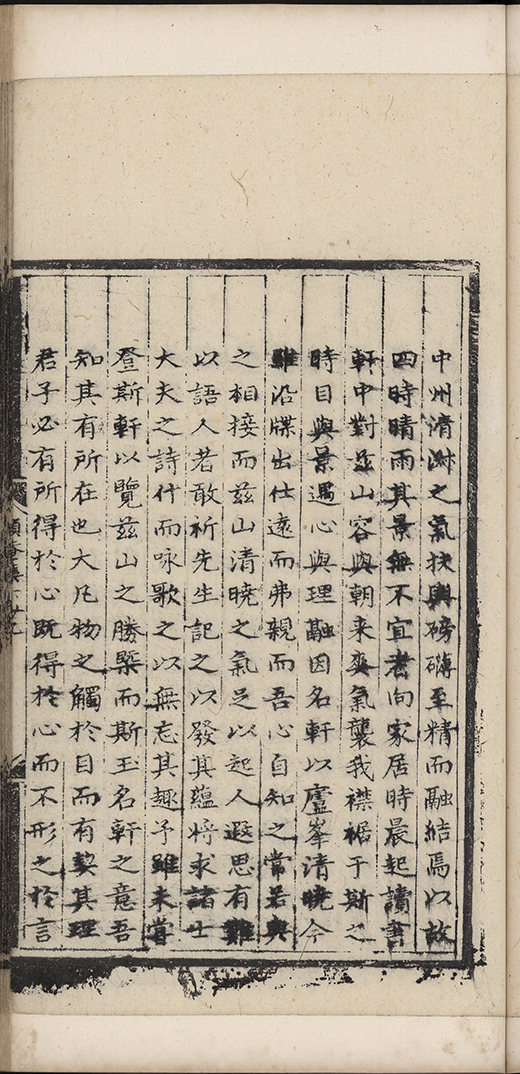 中州清淑之氣扶輿磅礴至精而融結焉以故
四時晴雨其景無不宜者向家居時晨起讀書
軒中對茲山容與朝来爽氣襲我襟裾于斯之
時目與景遇心與理融因名軒以廬峯清曉今
雖沿牒出仕遠而弗親而吾心自知之常若與
之相接而茲山清曉之氣足以起人遐思有難
以語人者敢祈先生記之以發其蘊將求諸士
大夫之詩什而咏歌之以無忘其趣予雖未嘗
登斯軒以覽茲山之勝槩而斯玉名軒之意吾
知其有所在也大凡物之觸於目而有契其理
君子必有所得於心既得於心而不形之於言